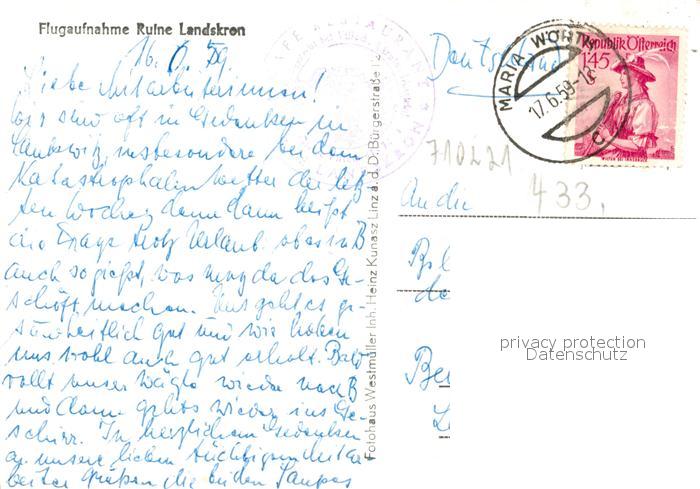 Flugaufnahme Ruine Landskron
16. 6. 59.
Liebe Mitarbeiterinnen!
Wir sind oft in Gedanken in
Lankwitz, insbesondere bei dem
Katastrophalen Wetter der letz-
ten Wochen denn dann heißt
die Frage trotz Urlaub ob es in B
auch so gießt, was mag da das Ge-
schäft machen. Uns geht es ge-
sundheitlich gut und wir haben
uns wohl auch gut erholt. Bald
rollt unser Wäglo wieder nach B
und dann gehts wieder ins Ge-
schirr. In herzlichem Gedenken
an unsere lieben tüchtigen Mitar-
beiter grüßen die beiden
Fotohaus Westmüller Inh. Heinz Kunasz Linz a. d. D. Bürgerstraße
Deutschland
MARIA WÖRTH
17.6.59-18
c
Republik Österreich
1·45
710421
433.
An die
privacy protection
Datenschutz